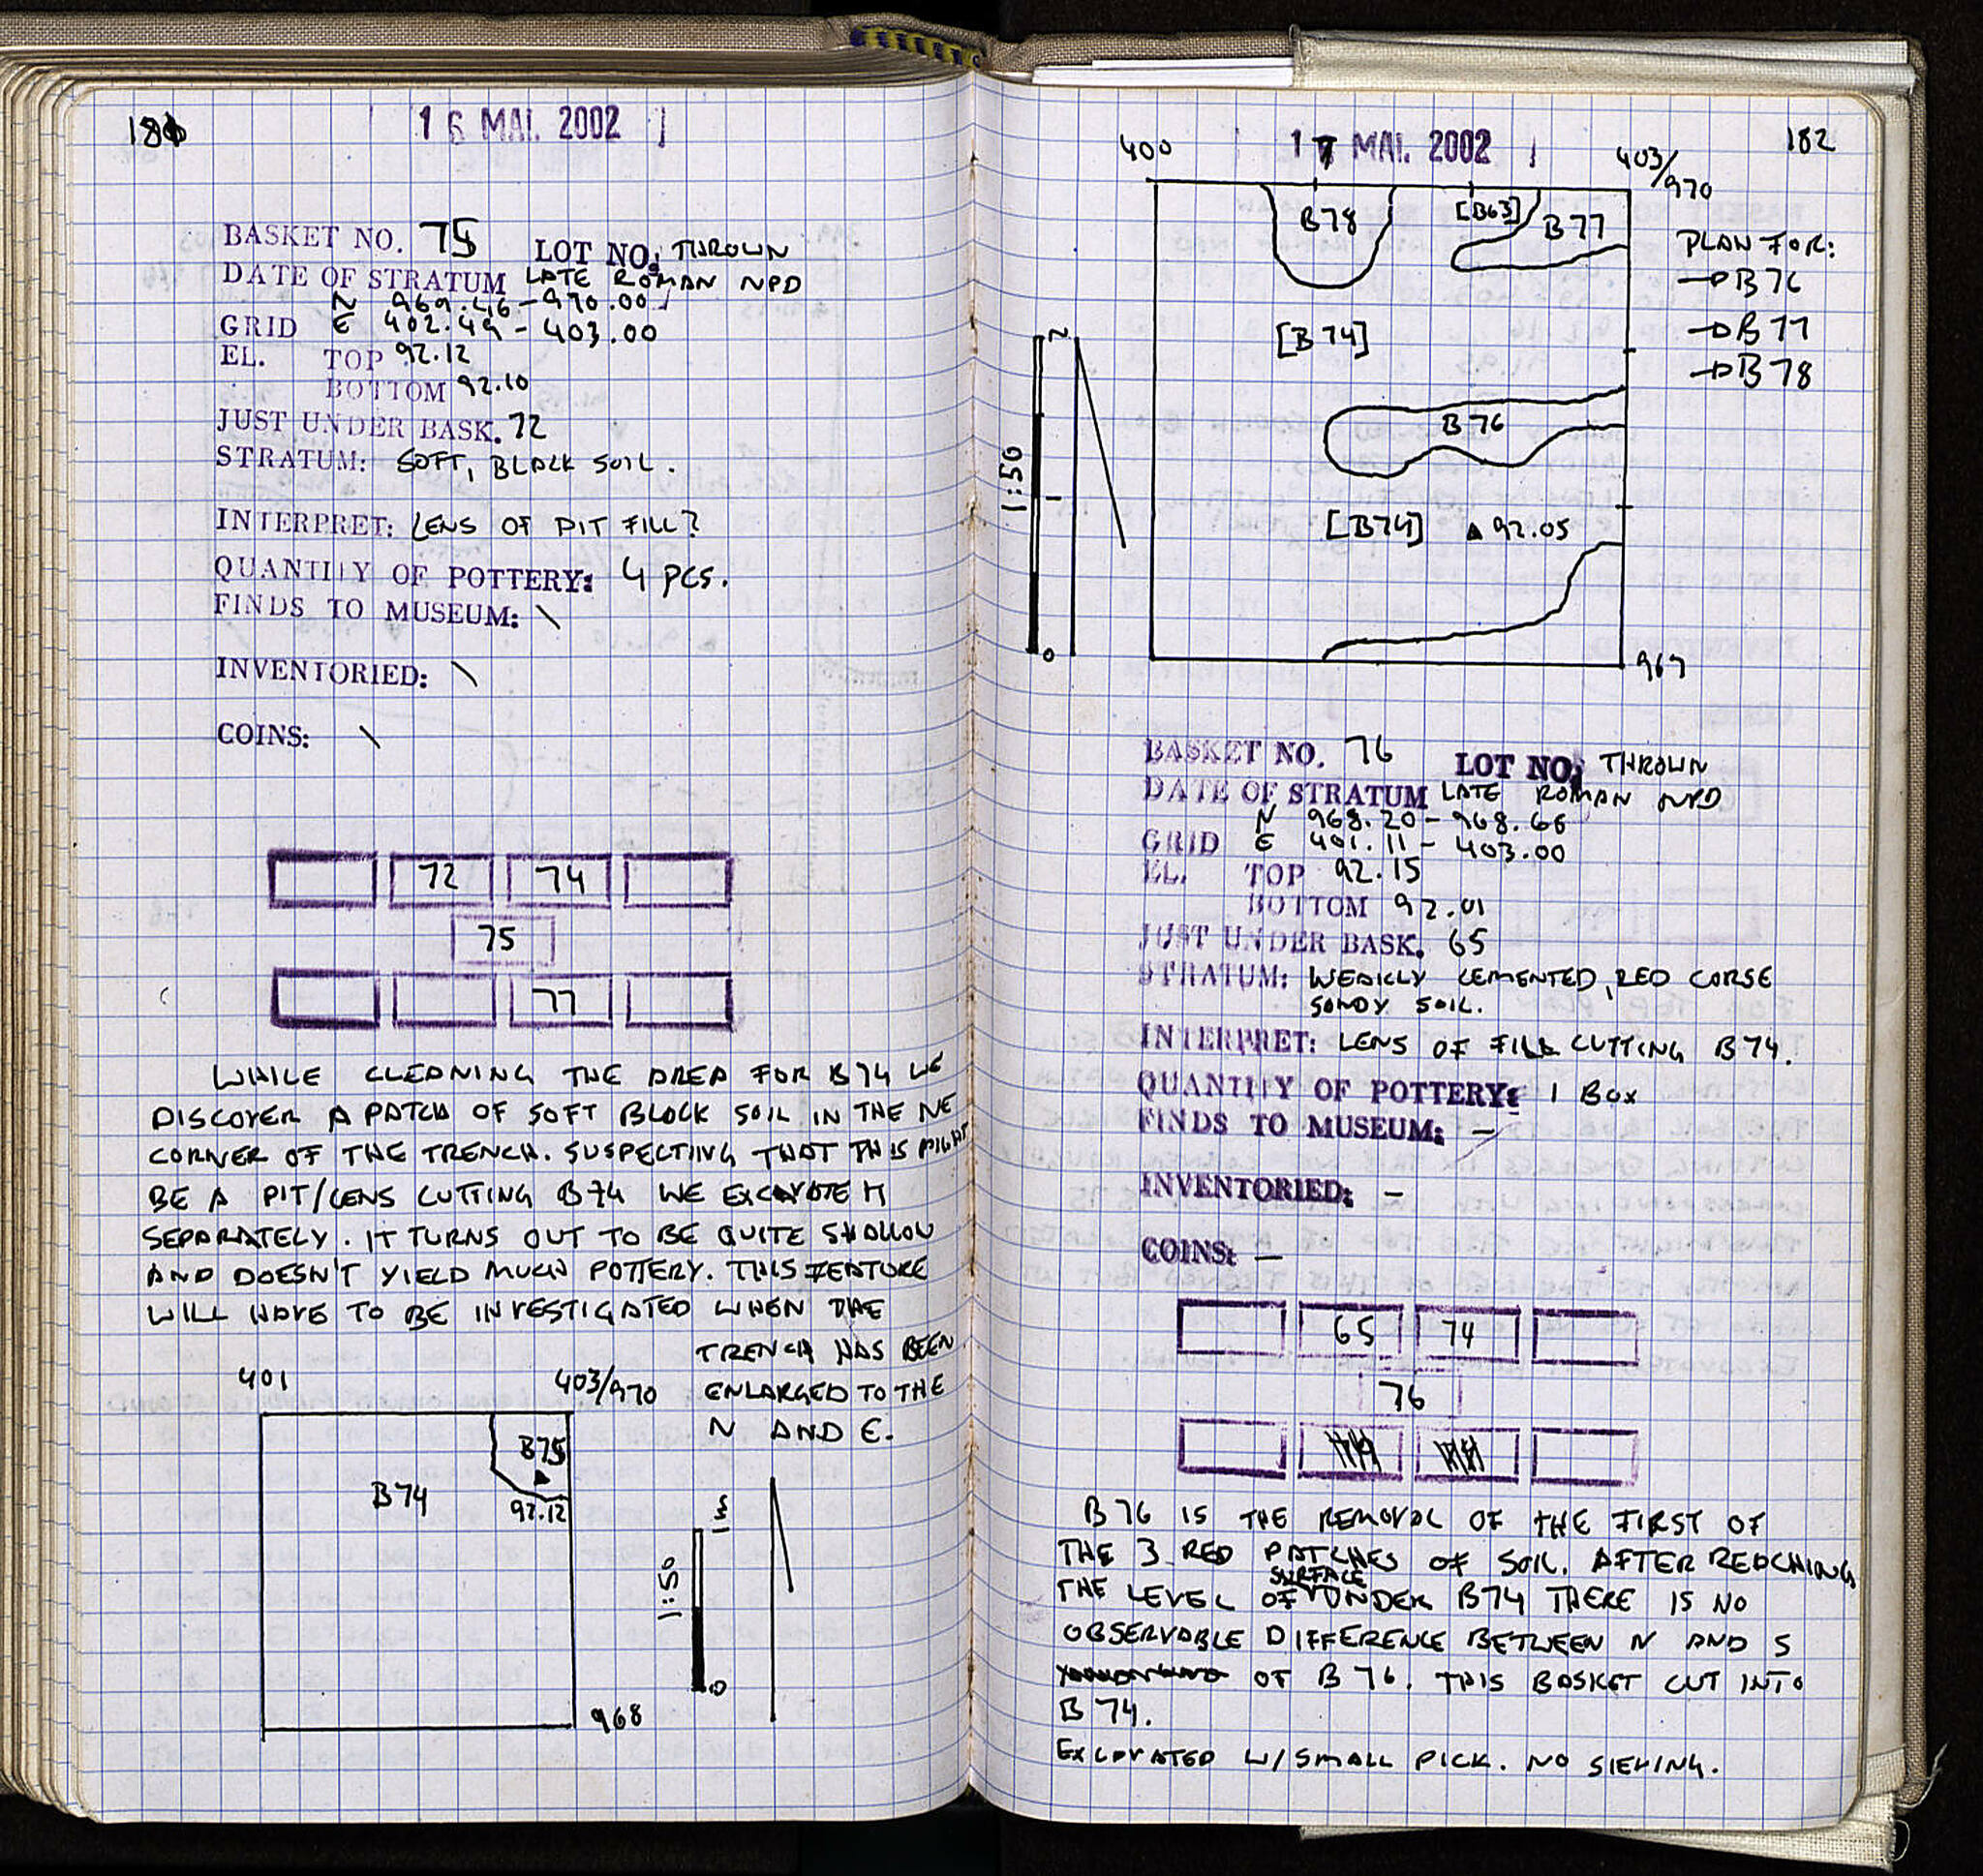 181
16 MAI. 2002
BASKET NO. 75 LOT NO: THROWN
DATE OF STRATUM LATE ROMAN NPD
N 969.46 - 970.00
GRID E 402.49 - 403.00
EL. TOP 92.12
BOTTOM 92.10
JUST UNDER BASK. 72
STRATUM: SOFT, BLACK SOIL.
INTERPRET: LENS OF PIT FILL?
QUANTITY OF POTTERY: 4 PCS.
FINDS TO MUSEUM: \
INVENTORIED: \
COINS: \
72 74
75
77
WHILE CLEANING THE AREA FOR B74 WE
DISCOVER A PATCH OF SOFT BLACK SOIL IN THE NE
CORNER OF THE TRENCH. SUSPECTING THAT THIS MIGHT
BE A PIT/LENS CUTTING B74 WE EXCAVATE IT
SEPARATELY. IT TURNS OUT TO BE QUITE SHALLOW
AND DOESN'T YIELD MUCH POTTERY. THIS FEATURE
WILL HAVE TO BE INVESTIGATED WHEN THE
TRENCH HAS BEEN
ENLARGED TO THE
N AND E.
401 403/970
B75
92.12
B74
1:50
0
968
182
17 MAI. 2002
400 403/970
B78 [B63] B77
PLAN FOR:
→ B76
→ B77
→ B78
[B74]
B76
[B74] ▲ 92.05
1:50
N
0
967
BASKET NO. 76 LOT NO: THROWN
DATE OF STRATUM LATE ROMAN NPD
N 968.20 - 968.66
GRID E 401.11 - 403.00
EL. TOP 92.15
BOTTOM 92.01
JUST UNDER BASK. 65
STRATUM: WEAKLY CEMENTED, RED CORSE
SANDY SOIL.
INTERPRET: LENS OF FILL CUTTING B74.
QUANTITY OF POTTERY: 1 BOX
FINDS TO MUSEUM: –
INVENTORIED: –
COINS: –
65 74
76
B76 IS THE REMOVAL OF THE FIRST OF
THE 3 RED PATCHES OF SOIL. AFTER REACHING
THE LEVEL OF SURFACE UNDER B74 THERE IS NO
OBSERVABLE DIFFERENCE BETWEEN N AND S
OF B76. THIS BASKET CUT INTO
B74.
EXCAVATED W/SMALL PICK. NO SIEVING.